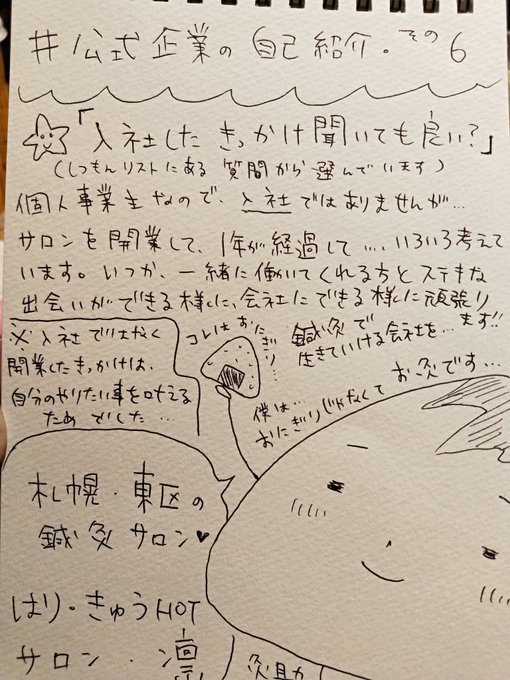 #公式企業の自己紹介。その6
「入社したきっかけ聞いても良い?」
(しつもんリストにある質問から選んでいます)
個人事業主なので、入社ではありませんが…
サロンを開業して、1年が経過して…、いろいろ考えて
います。いつか、一緒に働いてくれる方とステキな
出会いができる様に、会社にできる様に頑張り
ます!!
鍼灸で
生きていける会社を…
※入社ではなく
開業したきっかけは、
自分のやりたい事を叶える
ため でした…
コレはおにぎり…
僕は…
おにぎりじゃなくて
お灸です…
札幌・東区の
鍼灸サロン♥
はり・きゅうHOT
サロン・凛
灸